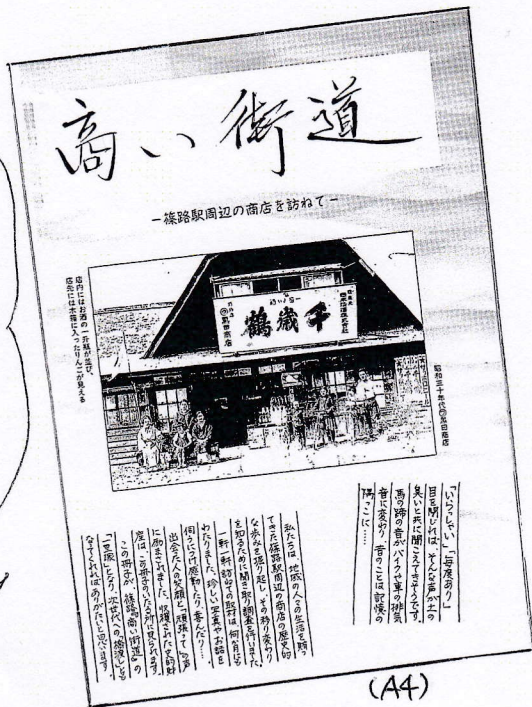 商い街道
－篠路駅周辺の商店を訪ねて－
千歳鶴
昭和三十年代
店内にはお酒の一升瓶が並び、
店先には木箱に入ったりんごが見える
「いらっしゃい」「毎度あり」
目を閉じれば、そんな声が土の
臭いと共に聞こえてきそうです。
馬の蹄の音がバイクや車の排気
音に変わり、昔のことは記憶の
隅っこに……
私たちは、地域の人々の生活を賄っ
てきた篠路駅周辺の商店の歴史的
な歩みを掘り起し、その移り変わり
を知るために聞き取り調査を行いました。
一軒一軒訪ねての取材は、何か月にも
わたりました。珍しい写真やお話を
伺うにつけ感動したり、喜んだり…
出会った人の笑顔と「頑張って」の声
に励まされました。収穫された史的財
産は、この冊子のいたる所に見られます。
この冊子が、篠路『商い街道』の
「一里塚」となり、次世代への「橋渡し」とも
なってくれればありがたいと思います。
(A4)